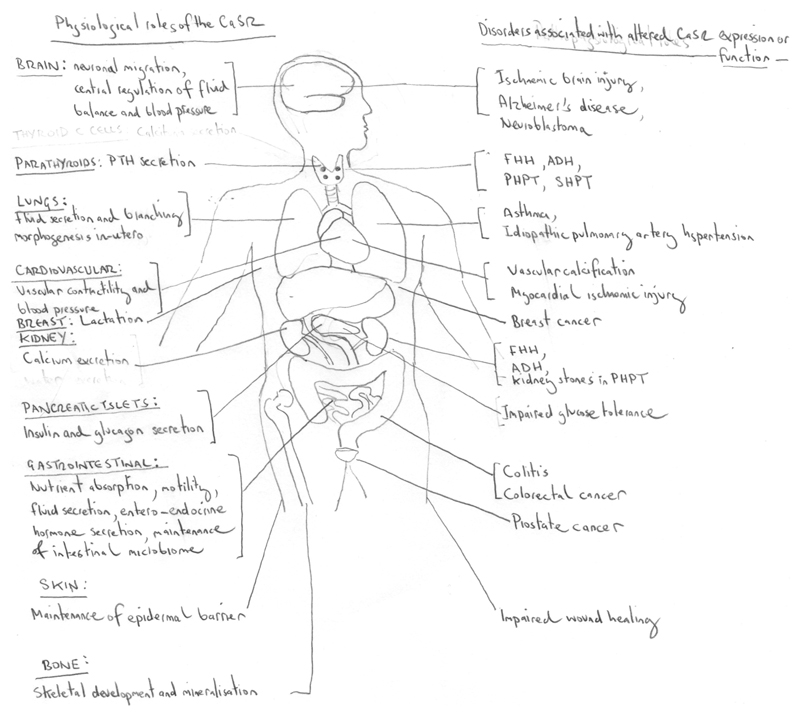 Physiological roles of the CaSR
BRAIN: neuronal migration,
central regulation of fluid
balance and blood pressure
THYROID C CELLS: Calcitonin secretion
PARATHYROIDS: PTH secretion
LUNGS:
Fluid secretion and branching
morphogenesis in-utero
CARDIOVASCULAR:
Vascular contractility and
blood pressure
BREAST: Lactation
KIDNEY:
Calcium excretion
PANCREATIC ISLETS:
Insulin and glucagon secretion
GASTROINTESTINAL:
Nutrient absorption, motility,
fluid secretion, entero-endocrine
hormone secretion, maintenance
of intestinal microbiome
SKIN:
Maintenance of epidermal barrier
BONE:
Skeletal development and mineralisation
Disorders associated with altered CaSR expression or
function –
Ischemic brain injury,
Alzheimer's disease,
Neuroblastoma
FHH, ADH,
PHPT, SHPT
Asthma,
Idiopathic pulmonary artery hypertension
Vascular calcification
Myocardial ischmonic injury
Breast cancer
FHH,
ADH,
Kidney stones in PHPT
Impaired glucose tolerance
Colitis
Colorectal cancer
Prostate cancer
Impaired wound healing